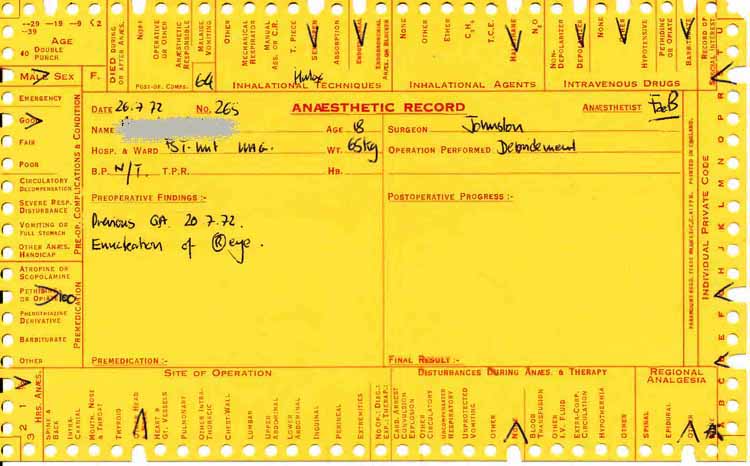 --29 --19 --9 <2
--39
AGE
40 DOUBLE PUNCH
MALE SEX F.
DIED DURING OR AFTER ANÆS.
NOT!
OPERATIVE OR OTHER
ANÆSTHETIC RESPONSIBLE
MALAISE VOMITING
OTHER
POST-OP. COMPS.
64
MECHANICAL RESPIRATOR
MANUAL ASS. OR C.R.
T. PIECE
ABSORPTION
INHALATIONAL TECHNIQUES
NONE
OTHER
ETHER
C₃H₆
T.C.E.
HALOTHANE
N₂O
INHALATIONAL AGENTS
NON-DEPOLARIZER
DEPOLARIZER
NONE
OTHER
HYPOTENSIVE
PETHIDINE OR OPIATE
BARBITURATE
INTRAVENOUS DRUGS
RECORD OF SPECIAL INTEREST
DATE 26.7.72 NO. 265 ANÆSTHETIC RECORD ANÆSTHETIST
NAME AGE 18 SURGEON Johnston
HOSP. & WARD WT. 65kg OPERATION PERFORMED Debridement
B.P. N/T. T.P.R. HB.
PREOPERATIVE FINDINGS :- POSTOPERATIVE PROGRESS :-
Previous GA. 20.7.72.
Enucleation of Ⓡ eye.
PREMEDICATION :- FINAL RESULT :-
EMERGENCY
GOOD
FAIR
POOR
CIRCULATORY DECOMPENSATION
SEVERE RESP. DISTURBANCE
VOMITING OR FULL STOMACH
OTHER ANÆS. HANDICAP
PRE-OP. COMPLICATIONS & CONDITION
ATROPINE OR SCOPOLAMINE
PETHIDINE OR OPIATE 100
PHENOTHIAZINE DERIVATIVE
BARBITURATE
OTHER
PREMEDICATION
INDIVIDUAL PRIVATE CODE
PRINTED IN ENGLAND.
A B C D E F G H I J K L M N O P Q R S T U
3 2 1
HRS. ANÆS.
SITE OF OPERATION
SPINE & BACK
INTRA-CARDIAC
MOUTH, NOSE & THROAT
THYROID
HEAD
HEART & GT. VESSELS
PULMONARY
OTHER INTRA-THORACIC
CHEST-WALL
LUMBAR
UPPER ABDOMINAL
LOWER ABDOMINAL
INGUINAL
PERINEAL
EXTREMITIES
NO OP.: DIAG.: EXP.: THERAP.:
DISTURBANCES DURING ANÆS. & THERAPY
CARD. ARREST
CONVULSION
EXPLOSION
OTHER CIRCULATORY
UNCOMPENSATED RESPIRATORY
UNPROTECTED VOMITING
OTHER
BLOOD TRANSFUSION
OTHER I.V. FLUID
EXTRA-CORP. CIRCULATION
HYPOTHERMIA
OTHER
REGIONAL ANALGESIA
SPINAL
EPIDURAL
OTHER